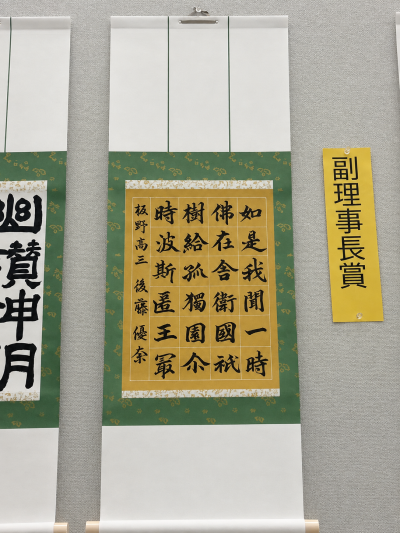 副理事長賞
如是我聞一時
佛在舍衛國祇
樹給孤獨園尒
時波斯匿王冣
板野高三 後藤優奈
幽賛神明